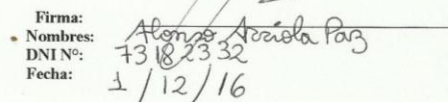 Firma:
Nombres: Alonso Arriola Paz
DNI Nº: 73 18 23 32
Fecha: 1 / 12 / 16